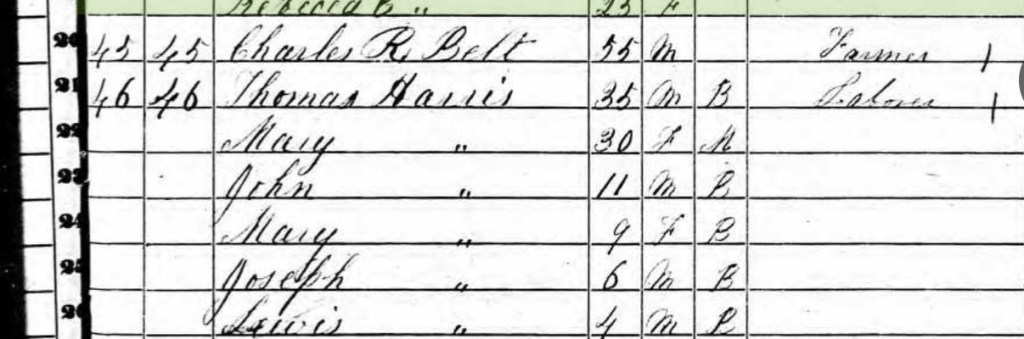 Rebecca E " 25 F
20 45 45 Charles R Belt 55 M Farmer 1
21 46 46 Thomas Harris 35 M B Laborer 1
22 Mary " 30 F M
23 John " 11 M B
24 Mary " 9 F B
25 Joseph " 6 M B
26 Lewis " 4 M B